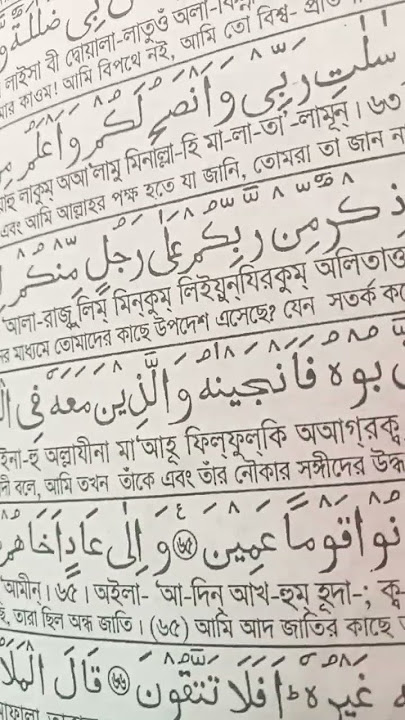 লাইসা বী দ্বোয়ালা-লাতুওঁ অলা-
কাওম! আমি বিপথে নই, আমি তো বিশ্ব-
سٰلٰتِ رَبِّیْ وَاَنْصَحُ لَكُمْ وَاَعْلَمُ
লাকুম্ অআ'লামু মিনাল্লা-হি মা-লা-তা'-লামূন্। ৬৩
এবং আমি আল্লাহর পক্ষ হতে যা জানি, তোমরা তা জান
ذِكْرٌ مِّنْ رَّبِّكُمْ عَلٰی رَجُلٍ مِّنْكُمْ
'আলা-রাজুলিম্ মিন্কুম্ লিইয়ুন্যিরকুম্ অলিতাত্তা
মাধ্যমে তোমাদের কাছে উপদেশ এসেছে? যেন সতর্ক
بُوْهُ فَاَنْجَیْنٰهُ وَالَّذِیْنَ مَعَهٗ فِی
ইনা-হু অল্লাযীনা মা'আহূ ফিল্ফুল্কি অআগ্রক্ব্
বলে, আমি তখন তাঁকে এবং তাঁর নৌকার সঙ্গীদের
نُوْا قَوْمًا عَمِیْنَ ﴿۶۴﴾ وَاِلٰی عَادٍ اَخَاهُمْ
'আমীন্। ৬৫। অইলা- 'আ-দিন্ আখ-হুম্ হূদা-;
তারা ছিল অন্ধ জাতি। (৬৫) আমি আদ জাতির কাছে
غَیْرُهٗ ؕ اَفَلَا تَتَّقُوْنَ ﴿۶۵﴾ قَالَ الْمَلَاُ